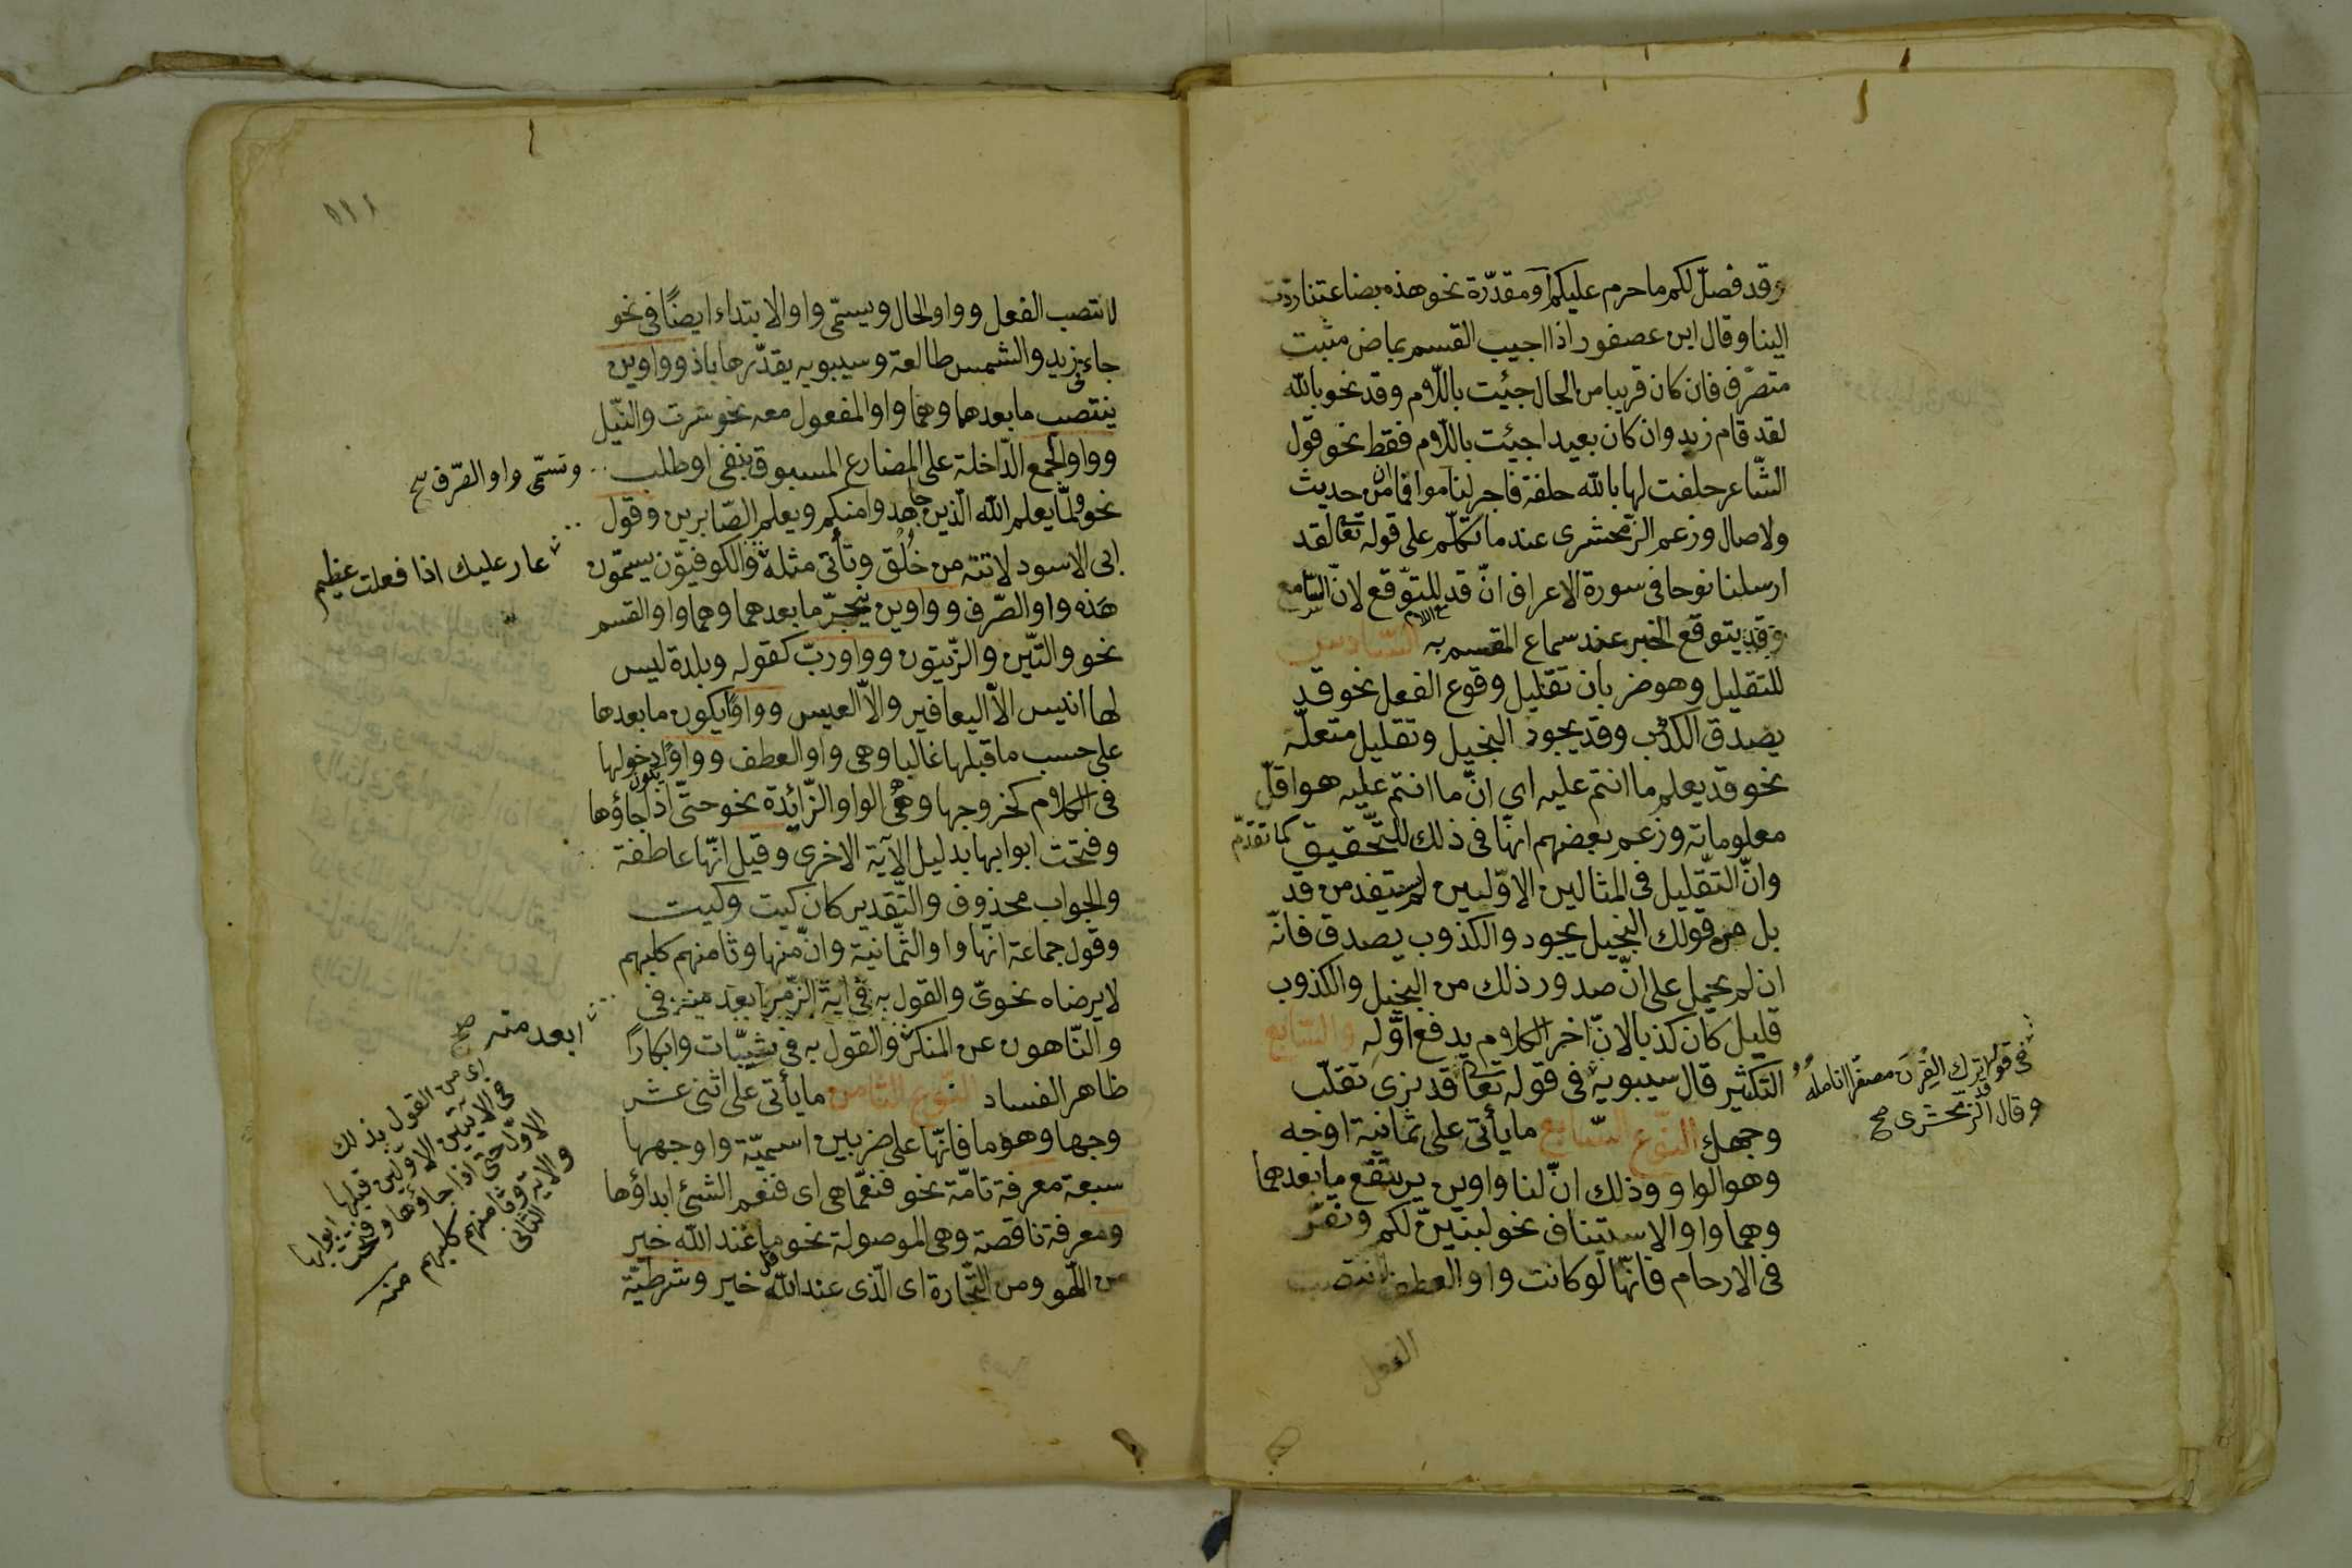 وقد فصّل لكم ما حرم عليكم او مقدّرة نحو هذه بضاعتنا ردّت
الينا وقال ابن عصفور اذا اجيب القسم بماض مثبت
متصرّف فان كان قريبا من الحال جئت باللّام وقد نحو بالله
لقد قام زيد وان كان بعيدا جئت باللّام فقط نحو قول
الشّاعر حلفت لها بالله حلفة فاجر لناموا فما ان من حديث
ولا صال وزعم الزّمخشرى عند ما تكلّم على قوله تعا لقد
ارسلنا نوحا فى سورة الاعراف انّ قد للتوّقع لانّ السّامع
يتوقع الخبر عند سماع المقسم به السّادس
للتقليل وهو ضربان تقليل وقوع الفعل نحو قد
يصدق الكذب وقد يجود البخيل وتقليل متعلّقه
نحو قد يعلم ما انتم عليه اى انّ ما انتم عليه هو اقلّ
معلوماته وزعم بعضهم انّها فى ذلك للتّحقيق كما تقدّم
وانّ التقّليل فى المثالين الاوّلين لم يستفد من قد
بل من قولك البخيل يجود والكذوب يصدق فانّه
ان لم يحمل على انّ صدور ذلك من البخيل والكذوب
قليل كان كذبا لانّ اخر الكلام يدفع اوّله والسّابع
التكثير قال سيبويه فى قوله تعا قد نرى تقلّب
وجهك النّوع السّابع ما يأتى على ثمانية اوجه
وهو الواو وذلك انّ لنا واوين يرتفع ما بعدهما
وهما واو الاستيناف نحو لنبيّن لكم ونقرّ
فى الارحام فانّها لو كانت واو العطف لانتصب
الفعل
فى قوله قد اترك القِرنَ مصفرّا انامله
وقال الزّمخشرى صح
لانتصب الفعل وواو الحال ويسمّى واو الابتداء ايضًا فى نحو
جاءنى زيد والشمس طالعة وسيبويه يقدّرها باذ وواوين
ينتصب ما بعدهما وهما واو المفعول معه نحو سرت والنّيل
وواو الجمع الدّاخلة على المضارع المسبوق بنفى او طلب
نحو ولمّا يعلم الله الّذين جاهدوا منكم ويعلم الصّابرين وقول
ابى الاسود لا تنه من خُلُق وتأتى مثله والكوفيّون يسمّون
هذه واو الصّرف وواوين ينجرّ ما بعدهما وهما واو القسم
نحو والتّين والزّيتون وواو ربّ كقوله وبلدة ليس
لها انيس الاّ اليعافير والاّ العيس وواوًا يكون ما بعدها
على حسب ما قبلها غالبا وهى واو العطف وواوًا يكون دخولها
فى الكلام كخروجها وهى الواو الزّائدة نحو حتّى اذا جاؤها
وفتحت ابوابها بدليل الآية الاخرى وقيل انّها عاطفة
والجواب محذوف والتّقدير كان كيت وكيت
وقول جماعة انّها واو الثّمانية وانّ منها وثامنهم كلبهم
لا يرضاه نحوىّ والقول به فى اية الزّمر ابعد منه فى
والنّاهون عن المنكر والقول به فى ثيّبات وابكارًا
ظاهر الفساد النّوع الثّامن ما يأتى على اثنى عشر
وجها وهو ما فانّها على ضربين اسميّة واوجهها
سبعة معرفة تامّة نحو فنعّما هى اى فنعم الشئ ابداؤها
ومعرفة ناقصة وهى الموصولة نحو قل ما عند الله خير
من اللّهو ومن التّجارة اى الّذى عند الله خير وشرطيّة
وتسمّى واو الصّرف صح
عار عليك اذا فعلت عظيم
ابعد منه صح
اى من القول بذلك
فى الآيتين الاوّلين قبلها
الاوّل حتى اذا جاؤها وفتحت ابوابها
والاية الثانى
وثامنهم كلبهم منه